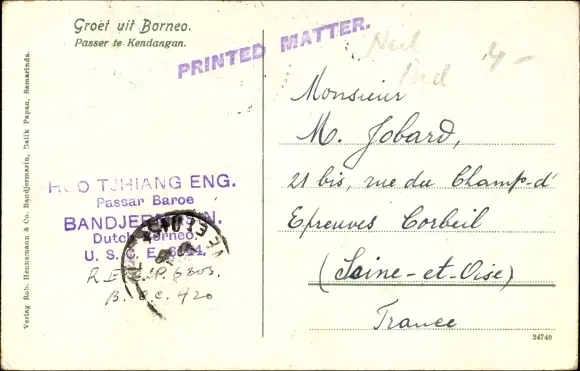 Groet uit Borneo.
Passer te Kendangan.
PRINTED MATTER.
Ned
Ind
4-
Verlag Rob. Hennemann & Co. Bandjermasin, Balik Papan, Samarinda.
HOO TJHIANG ENG.
Passar Baroe
BANDJERMASIN.
Dutch Borneo.
U. S. C. E.
B. C. C. 420
Monsieur
M. Jobard,
21 bis, rue du Champ-d'
Epreuves Corbeil
(Seine-et-Oise)
France
94740